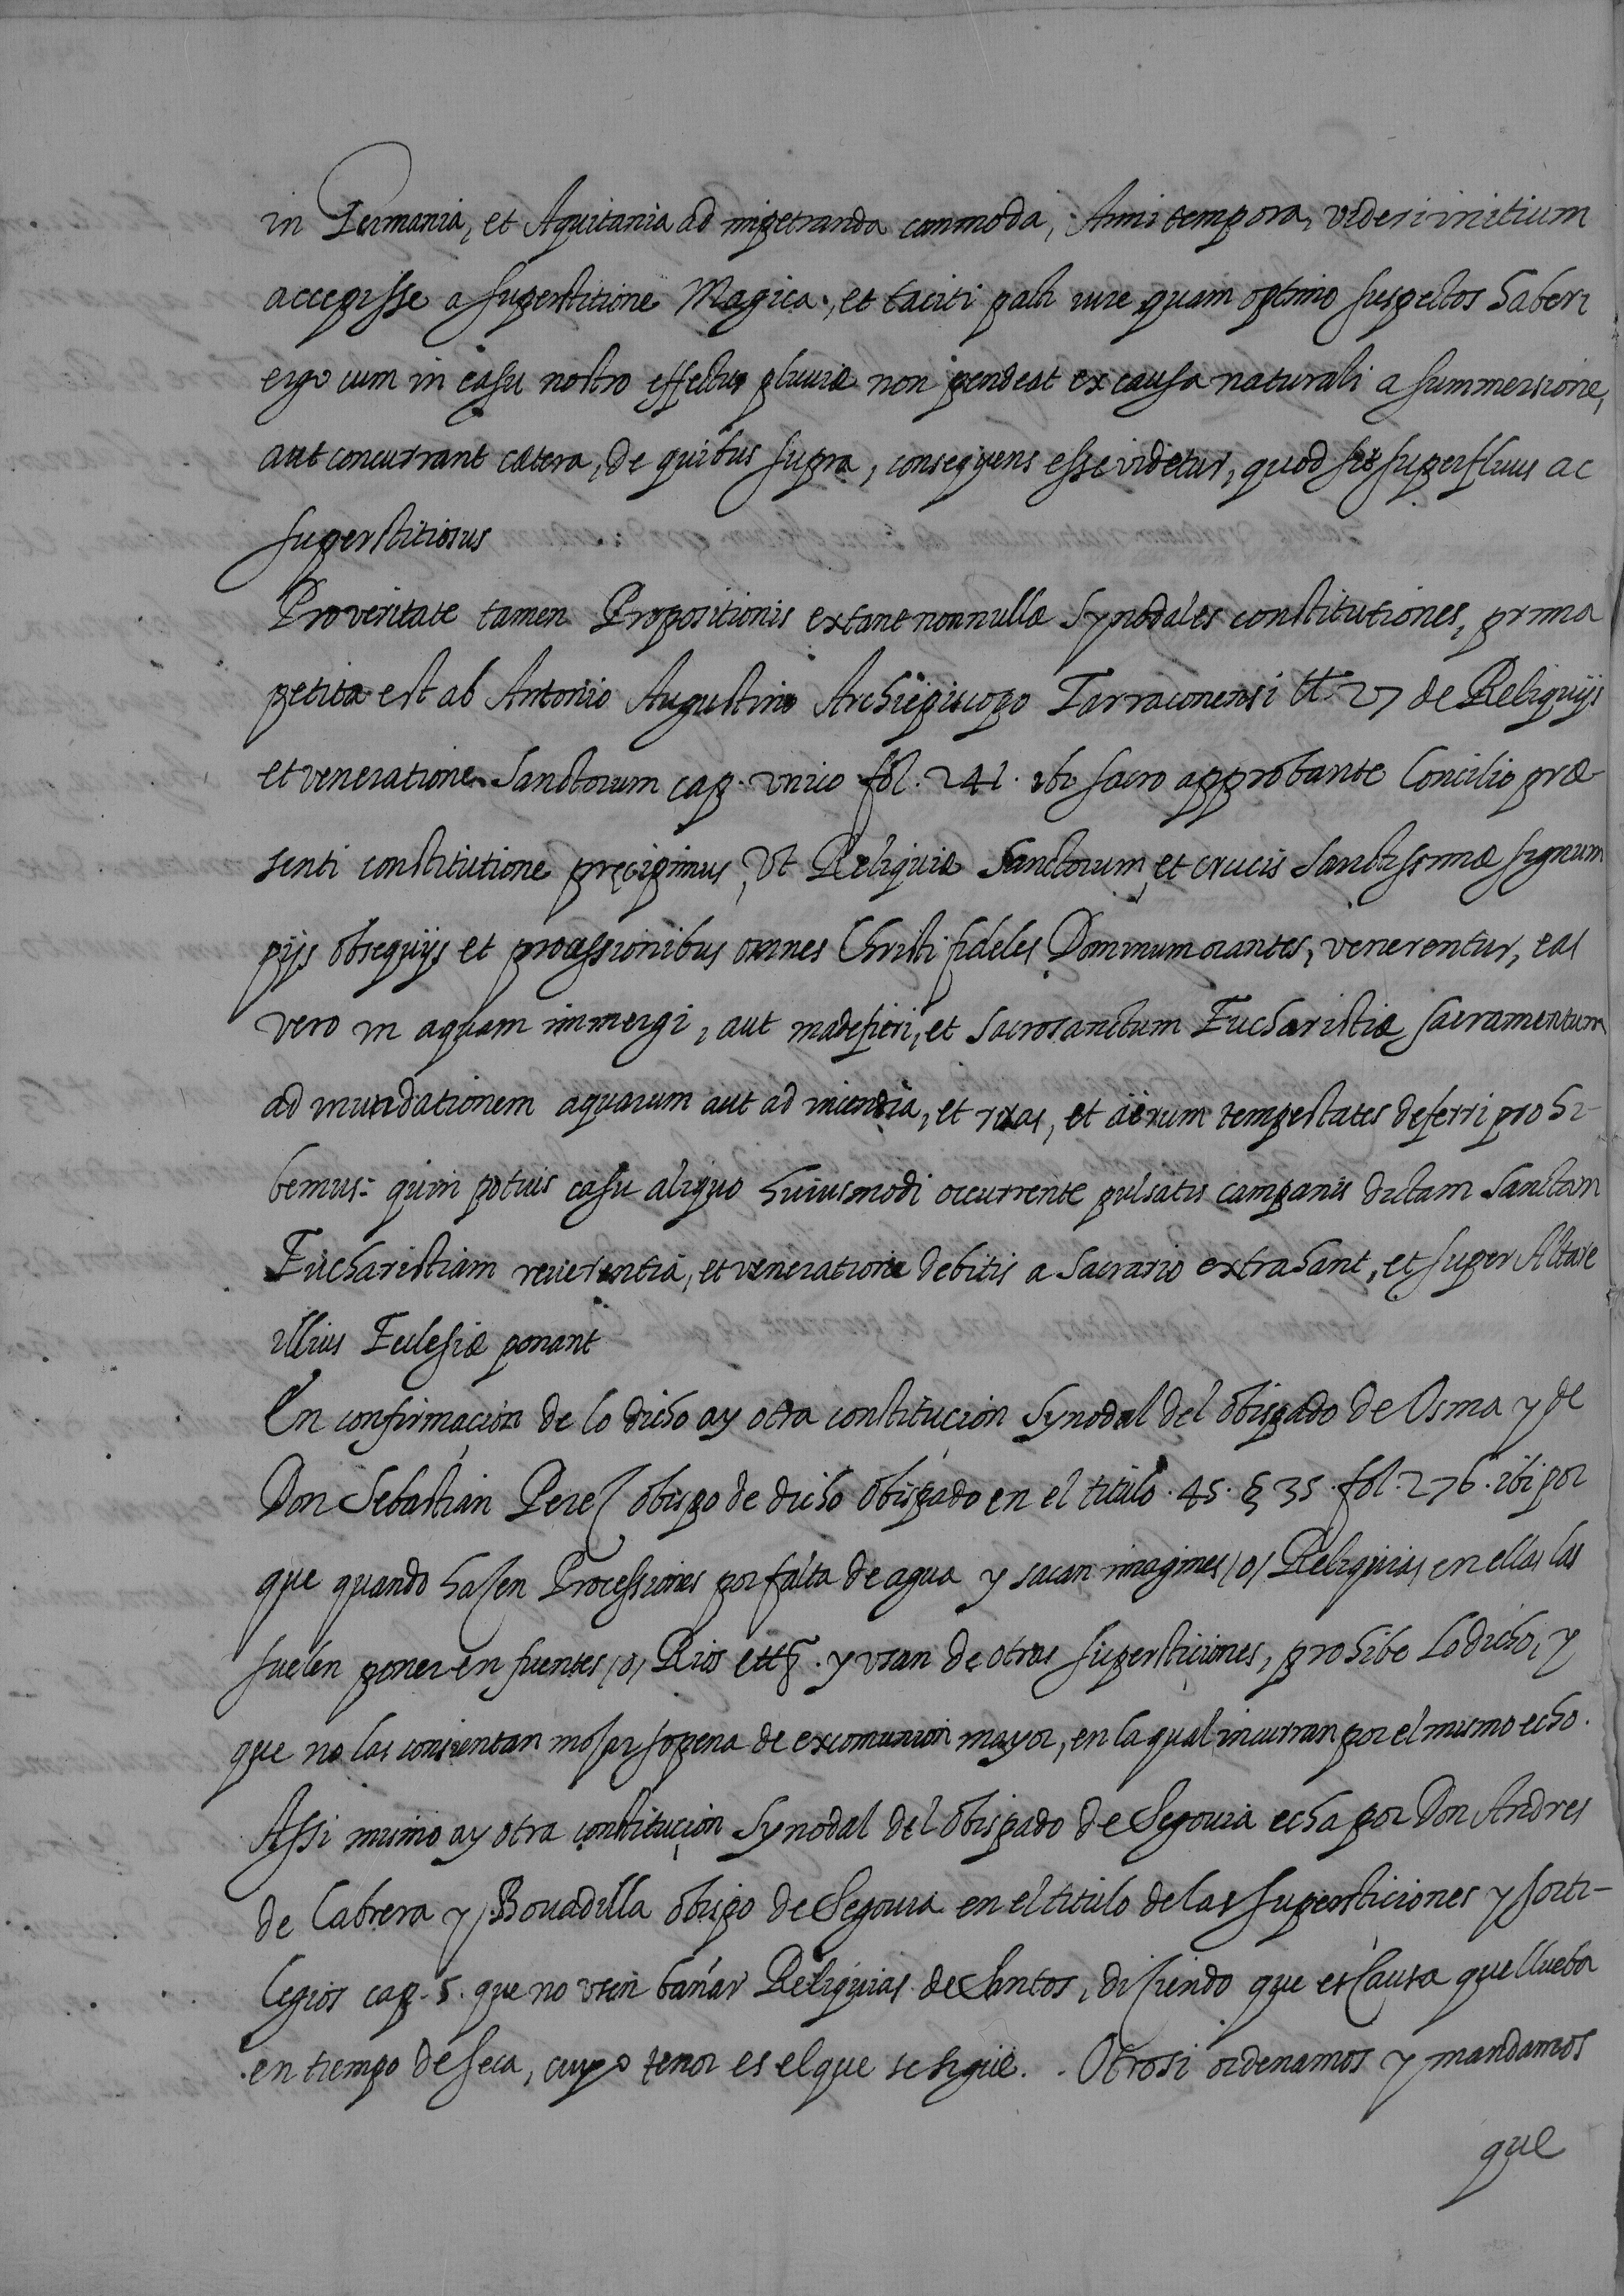 in Germania, et Aquitania ad impetranda commoda, Anni tempora, videri initium
accepisse a superstitione Magica, et taciti pacti iure quam optimo suspectos haberi
ergo cum in casu nostro effectus pluuiæ non pendeat ex causa naturali a summersione,
aut concurrant cætera, de quibus supra, consequens esse videtur, quod sit superfluus ac
superstitiosus
Pro veritate tamen Propositionis extant nonnullæ synodales constitutiones, prima
petita est ab Antonio Augustino Archiepiscopo Tarraconensi tt. 27 de Reliquijs
et veneratione Sanctorum cap. vnico fol. 241. ibi sacro approbante Concilio præ-
senti constitutione precipimus, Vt Reliquiæ Sanctorum, et crucis Sanctissimæ signum
pijs obsequijs et processionibus omnes Christi fideles Dominum orantes, venerentur, eas
vero in aquam immergi, aut madefieri, et sacrosanctum Eucharistiæ sacramentum
ad inundationem aquarum aut ad incendia, et rixas, et aërum tempestates deferri prohi-
bemus: quin potius casu aliquo huiusmodi occurrente pulsatis campanis dictam Sanctam
Eucharistiam reuerentia, et veneratione debitis a Sacrario extrahant, et super Altare
illius Ecclesiæ ponant
En confirmacion de lo dicho ay otra constitucion Synodal del obispado de Osma y de
Don Sebastian Perez obispo de dicho Obispado en el titulo. 45. § 35. fol. 276. ibi por
que quando hazen Processiones por falta de agua y sacan imagines /o/ Reliquias en ellas las
suelen poner en fuentes /o/ Rios ettª. y vsan de otras supersticiones, prohibe lo dicho, y
que no las consientan mojar sopena de excomunion mayor, en la qual incurran por el mismo echo.
Assi mismo ay otra constitucion Synodal del Obispado de Segouia echa por Don Andres
de Cabrera y Bouadilla obispo de Segouia en el titulo de las supersticiones y sorti-
legios cap. 5. que no vsen bañar Reliquias de Santos, diziendo que es Causa que llueba
en tiempo de seca, cuyo tenor es el que se sigue. . Otrosi ordenamos y mandamos
que